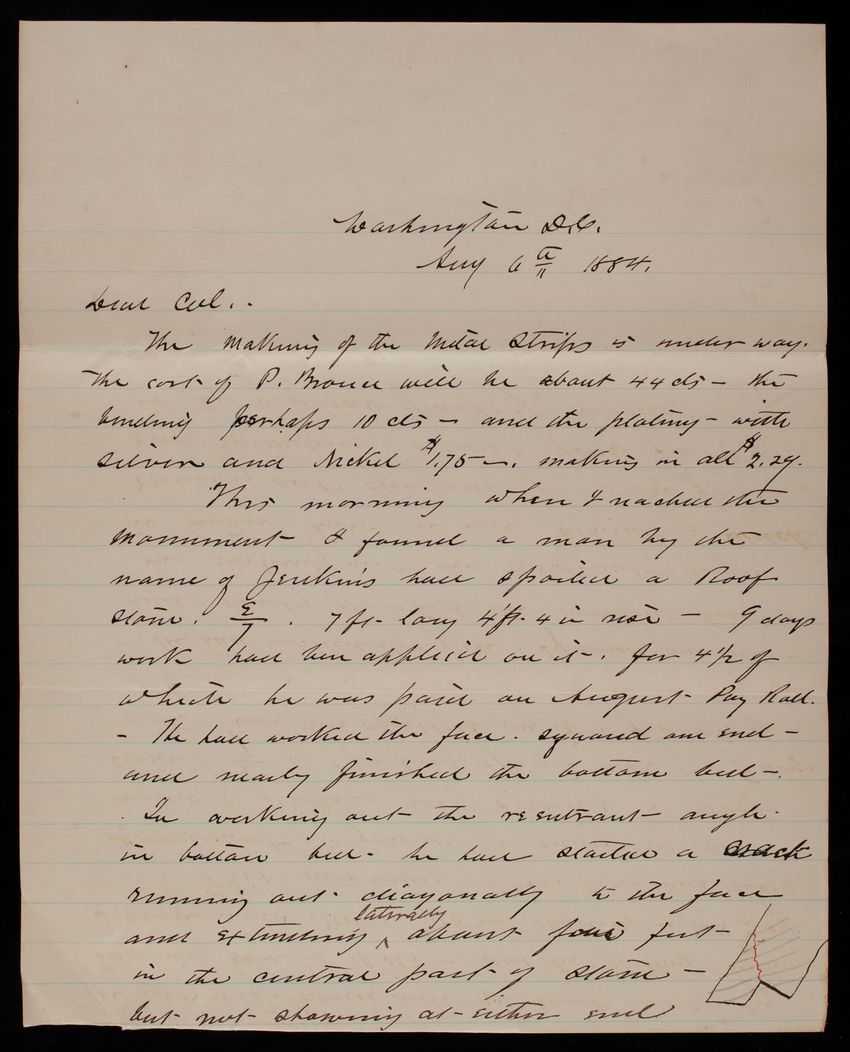 Washington D.C.
Aug 6th 1884.
Dear Col..
The making of the metal strips is under way.
The cost of P. Bronze will be about 44 cts – the
bending perhaps 10 cts – and the plating – with
silver and Nickel $1.75 –. making in all $2.29.
This morning when I reached the
monument I found a man by the
name of Jenkins had spoiled a Roof
stone. E/7 . 7 ft. long 4 ft. 4 in rise – 9 days
work had been applied on it. for 4 1/2 of
which he was paid on August Pay Roll.
– He had worked the face. squared one end –
and nearly finished the bottom bed –.
In working out the reentrant angle
in bottom bed – he had started a crack
running out diagonally to the face
and extending laterally about four feet
in the central part of stone –
but not showing at either end